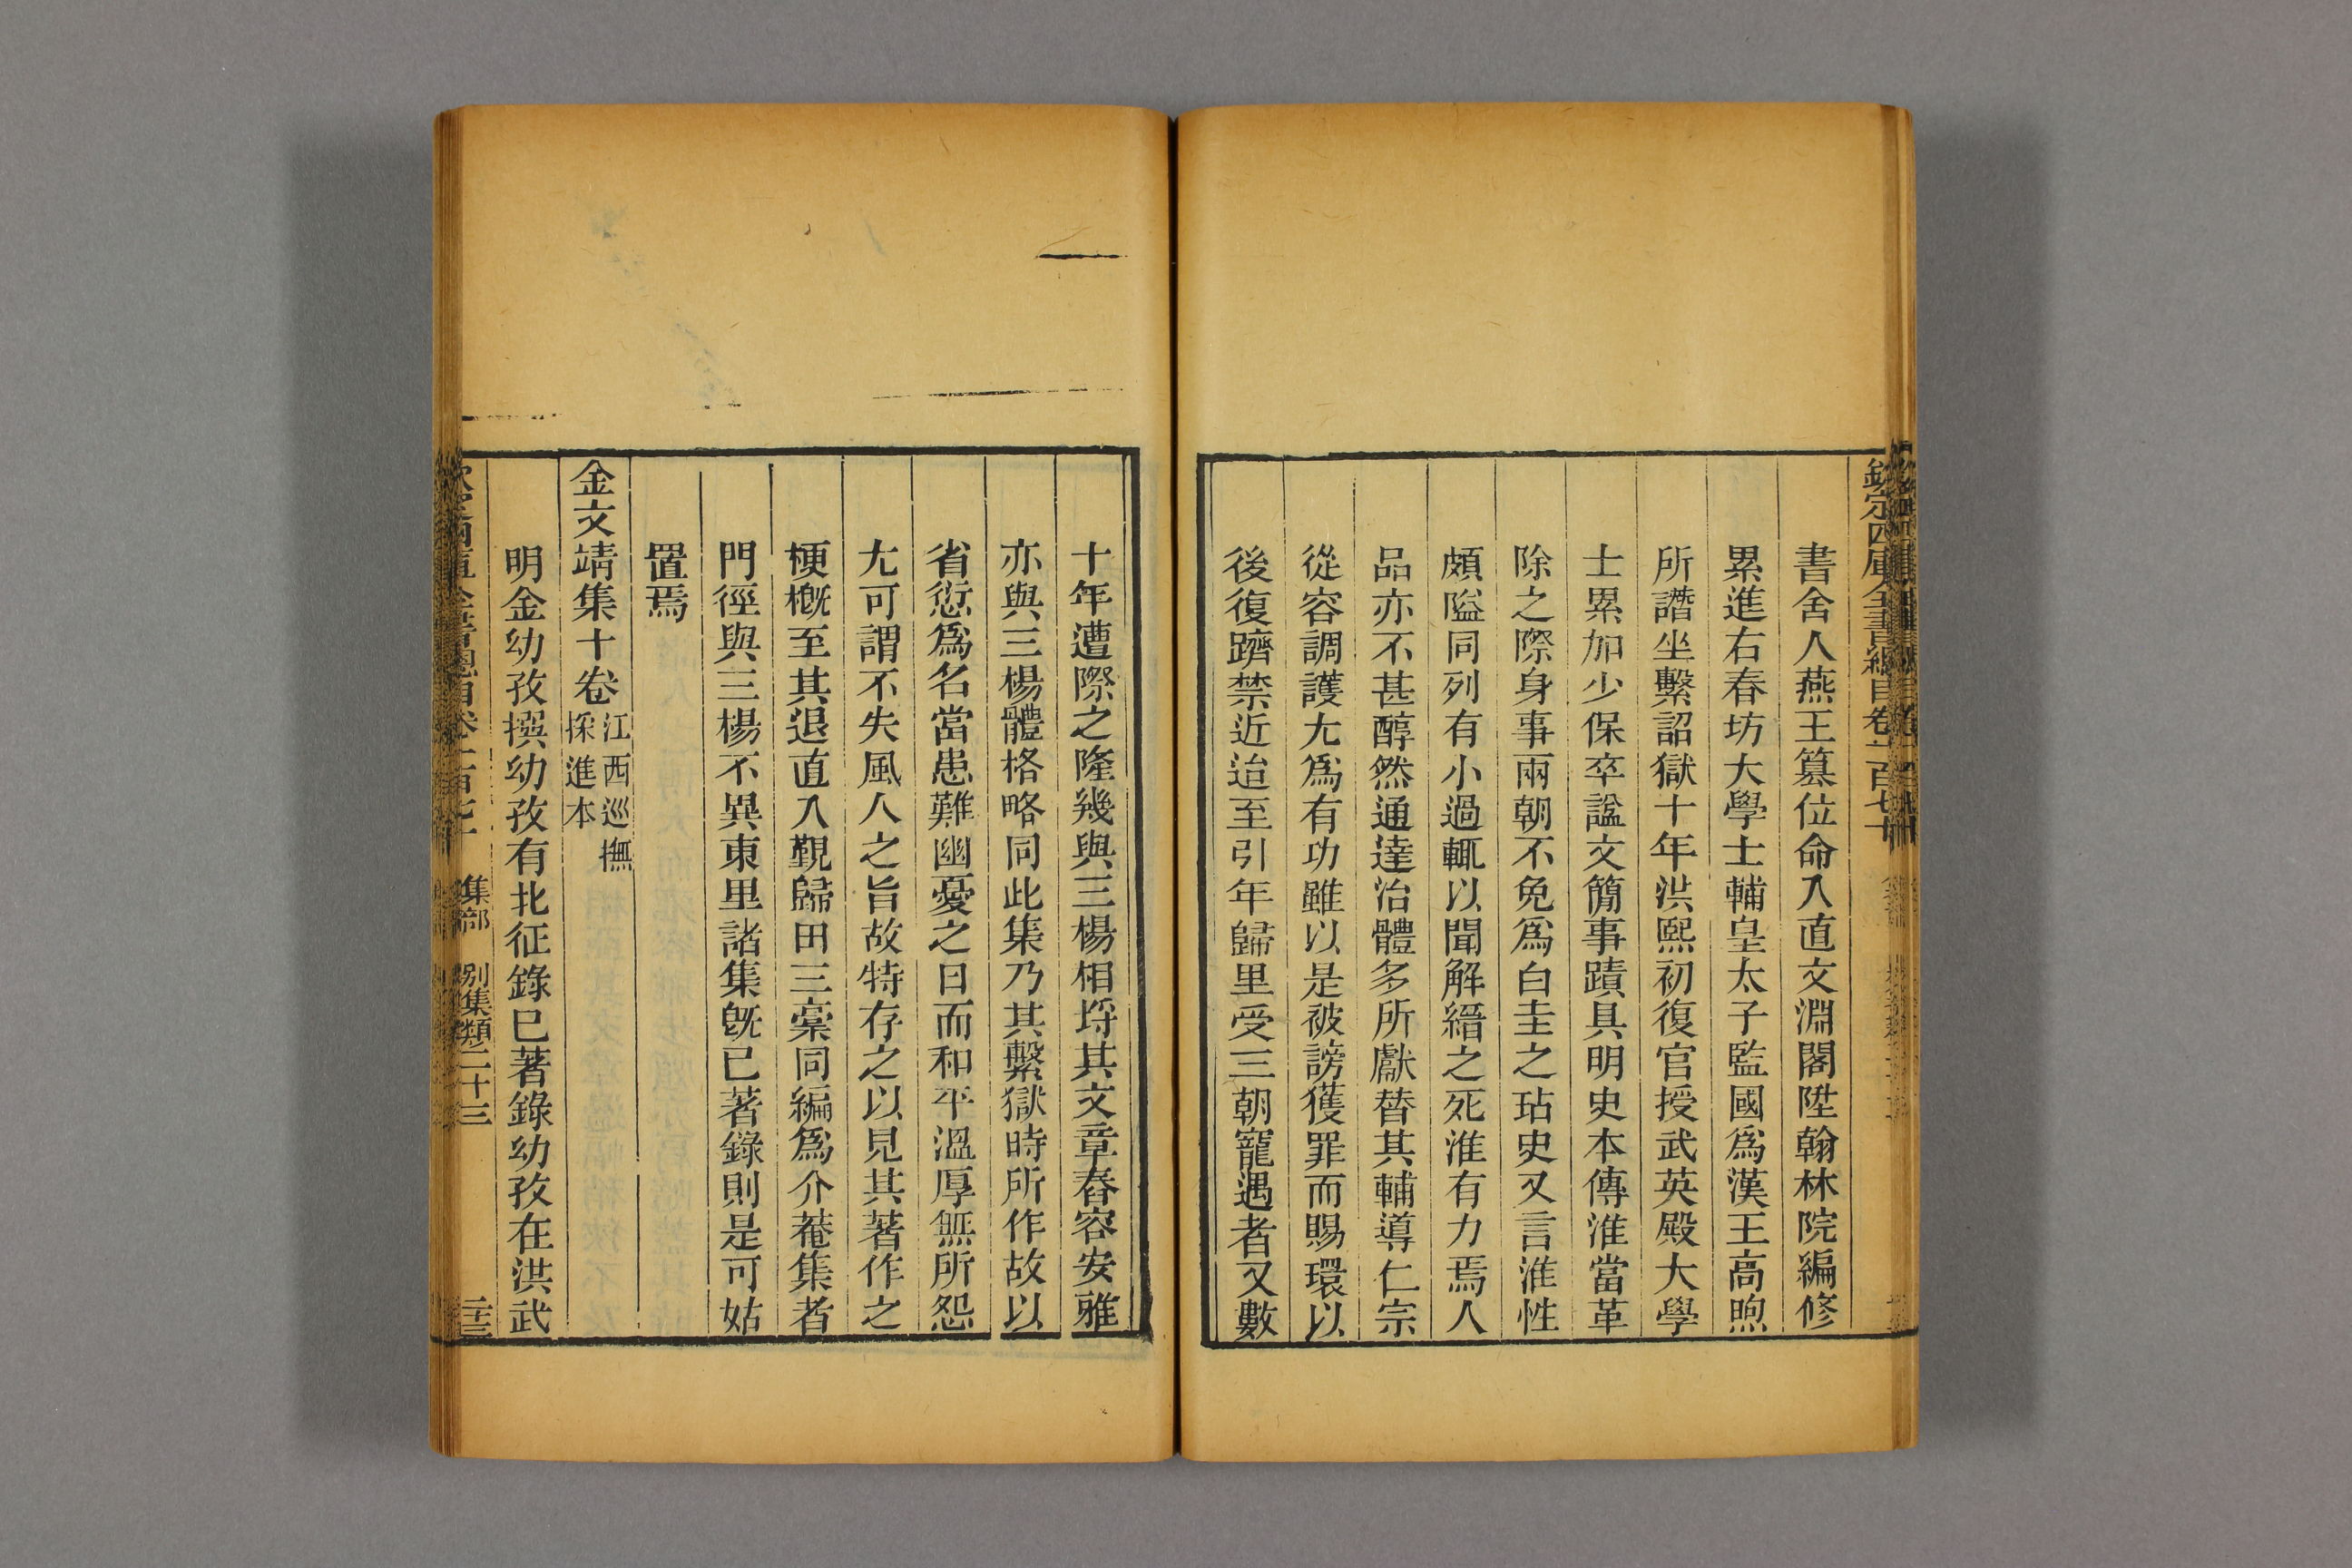 欽定四庫全書總目卷一百七十
書舍人燕王篡位命入直文淵閣陞翰林院編修
累進右春坊大學士輔皇太子監國為漢王高煦
所譖坐繫詔獄十年洪熙初復官授武英殿大學
士累加少保卒諡文簡事蹟具明史本傳淮當革
除之際身事兩朝不免為白圭之玷史又言淮性
頗隘同列有小過輒以聞解縉之死淮有力焉人
品亦不甚醇然通達治體多所獻替其輔導仁宗
從容調護尤為有功雖以是被謗獲罪而賜環以
後復躋禁近迨至引年歸里受三朝寵遇者又數
十年遭際之隆幾與三楊相埒其文章舂容安雅
亦與三楊體格略同此集乃其繫獄時所作故以
省愆為名當患難幽憂之日而和平溫厚無所怨
尤可謂不失風人之旨故特存之以見其著作之
梗槪至其退直入覲歸田三稾同編為介菴集者
門徑與三楊不異東里諸集旣已著錄則是可姑
置焉
金文靖集十卷江西巡撫
採進本
明金幼孜撰幼孜有北征錄已著錄幼孜在洪武
欽定四庫全書總目卷一百七十　集部　別集類二十三　二十三